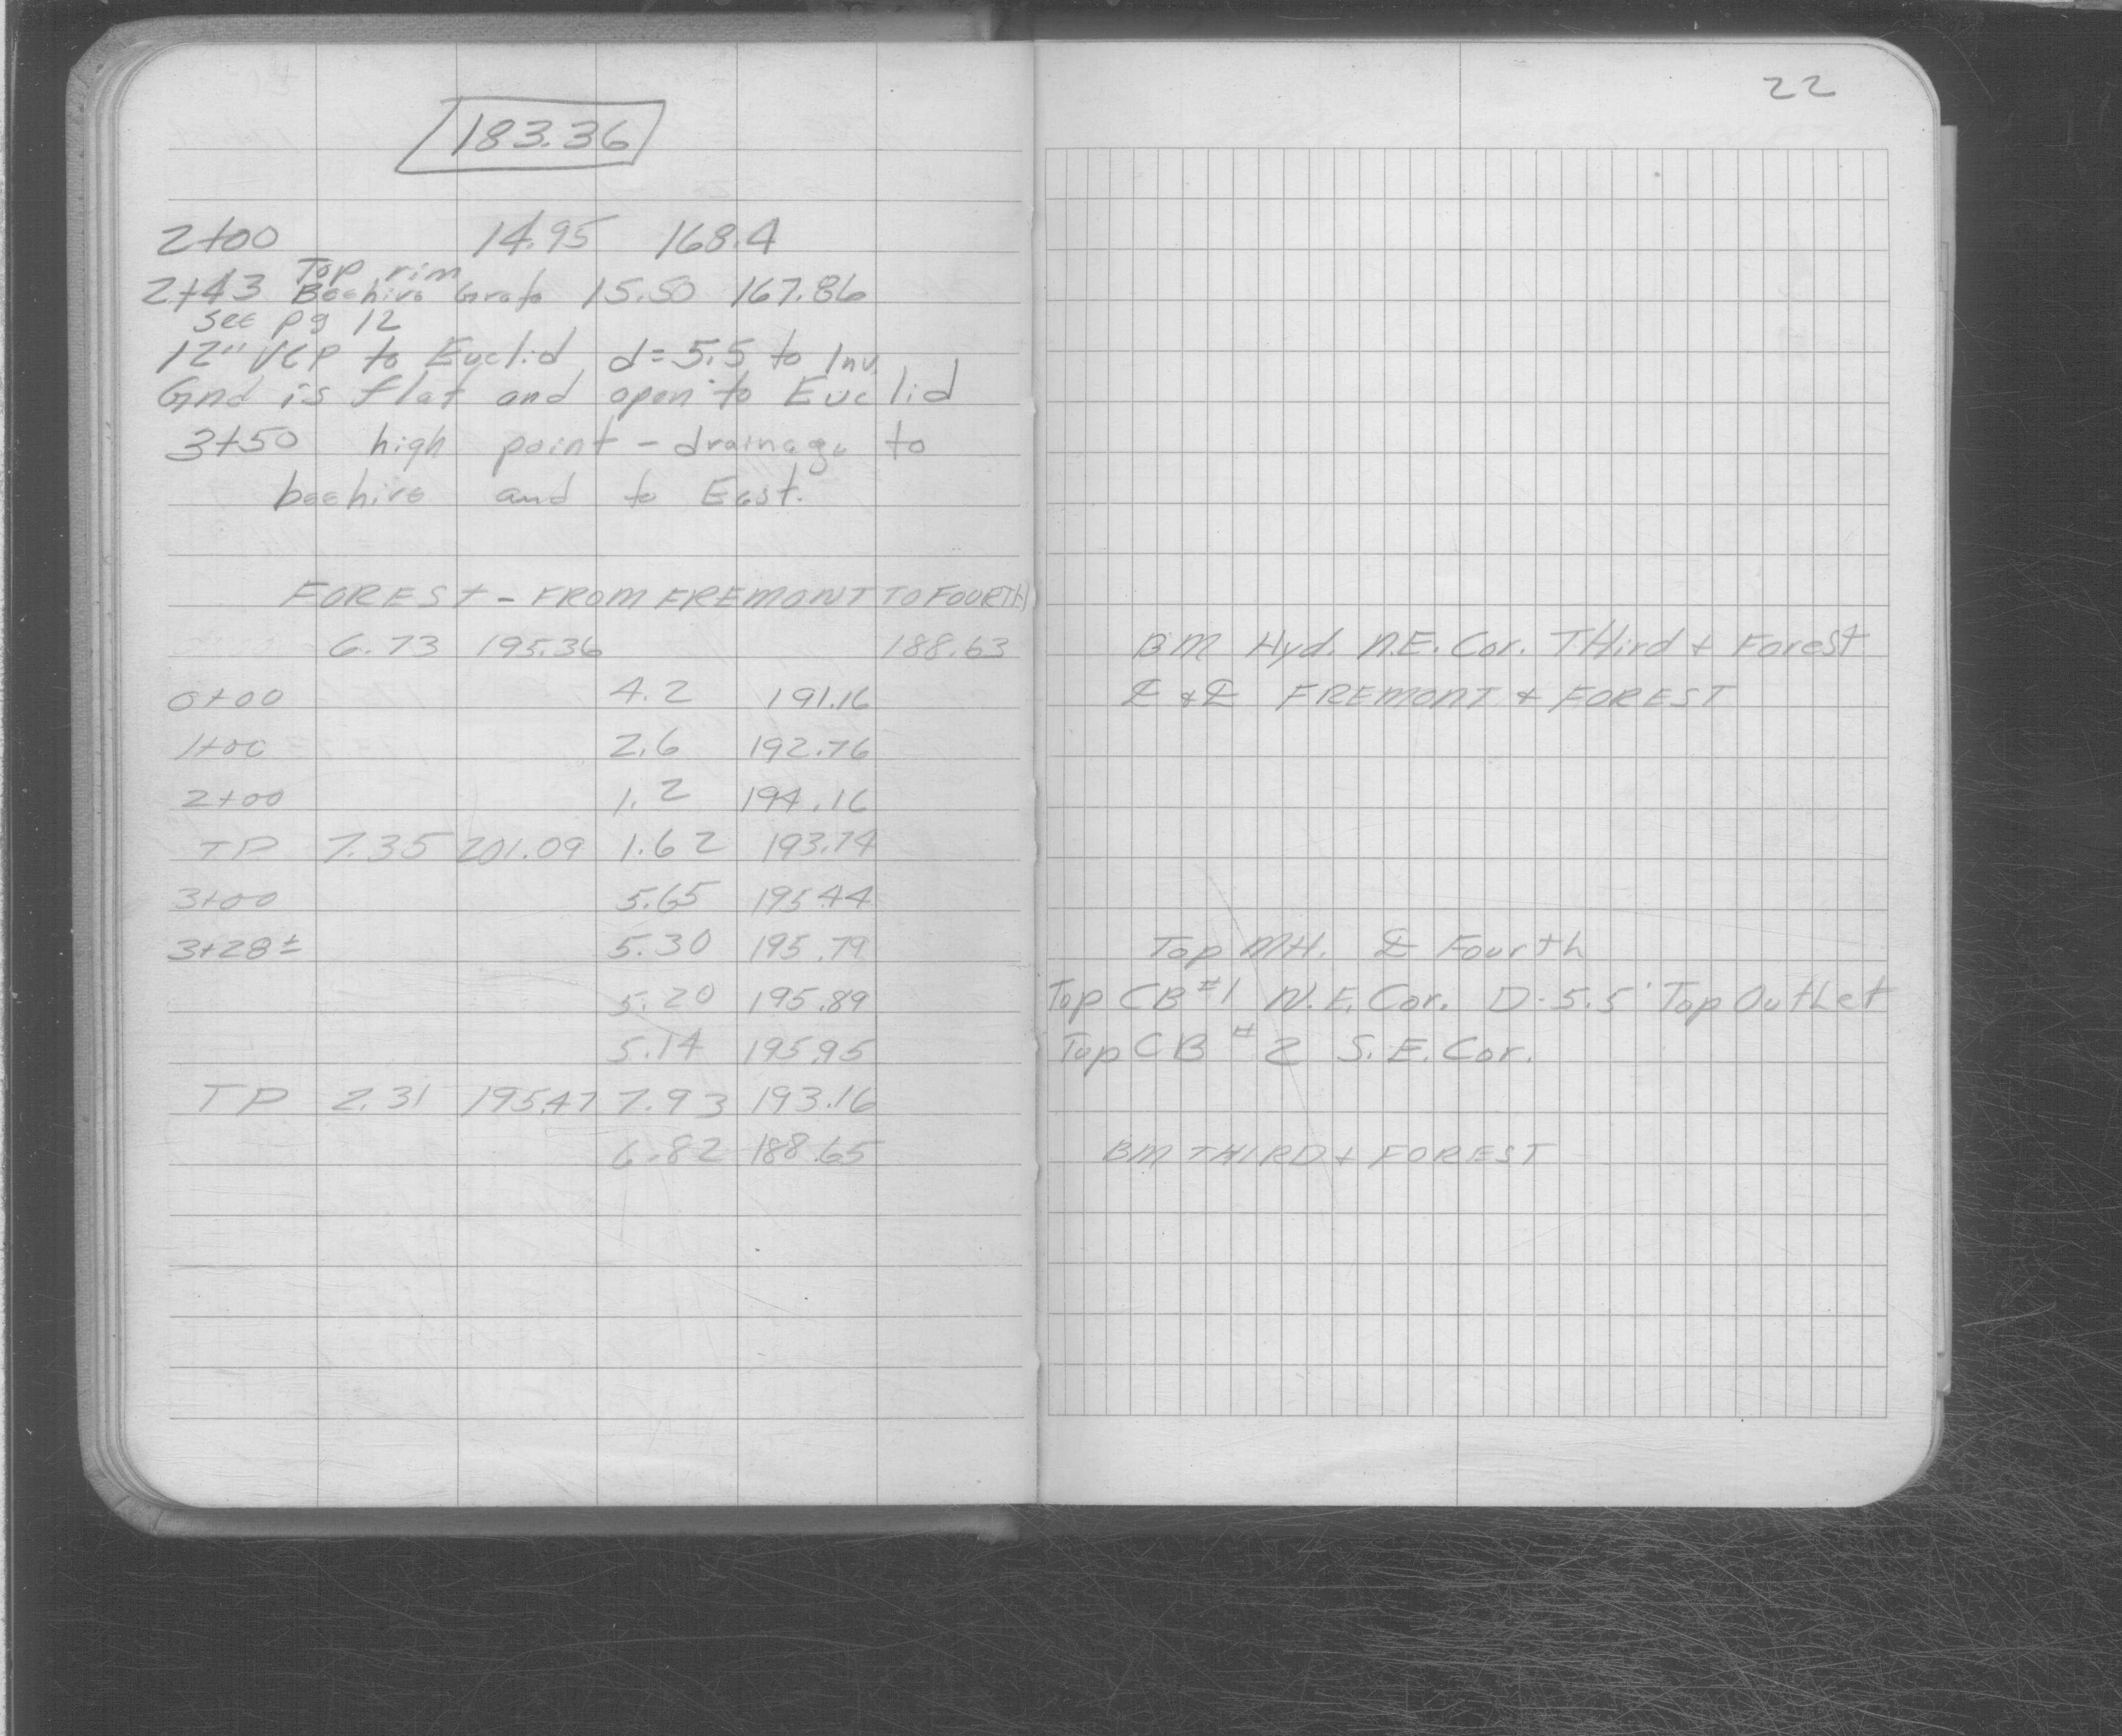 22
183.36
2+00 14.95 168.4
Top rim
2+43 Beehive Grate 15.50 167.86
see pg 12
12" VCP to Euclid d=5.5 to Inv.
Gnd is flat and open to Euclid
3+50 high point - drainage to
beehive and to East.
FOREST - FROM FREMONT TO FOURTH
6.73 195.36 188.63 BM Hyd. N.E. Cor. THird + Forest
0+00 4.2 191.16 ℄ + ℄ FREMONT + FOREST
1+00 2.6 192.76
2+00 1.2 194.16
TP 7.35 201.09 1.62 193.74
3+00 5.65 195.44
3+28± 5.30 195.79 Top MH. ℄ Fourth
5.20 195.89 Top CB #1 N.E. Cor. D-5.5' Top Outlet
5.14 195.95 Top CB #2 S.E. Cor.
TP 2.31 195.47 7.93 193.16
6.82 188.65 BM THIRD + FOREST